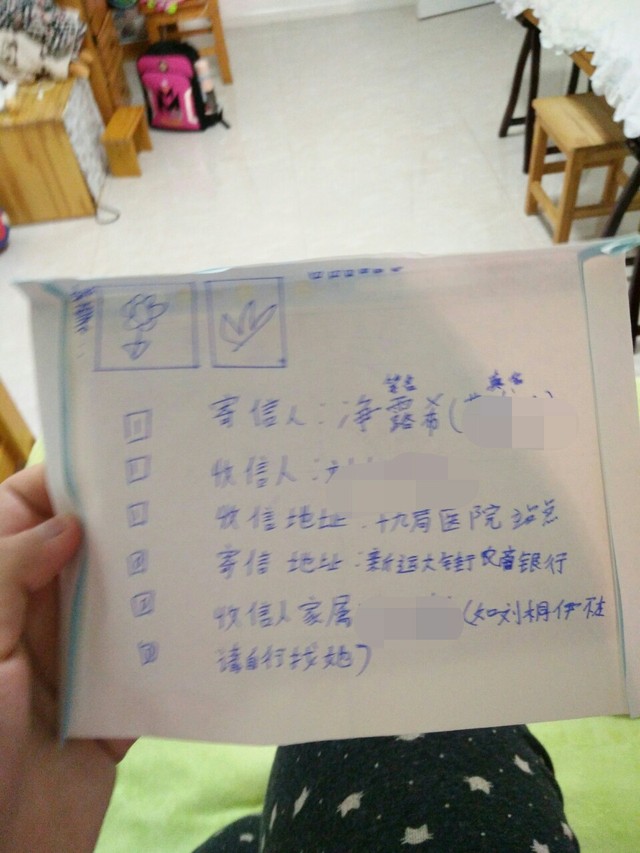 寄信人：净露希(
收信人：
收信地址：十九局医院
寄信地址：新运大街农商银行
收信人家属 (如刘桐伊在
请自行找她)